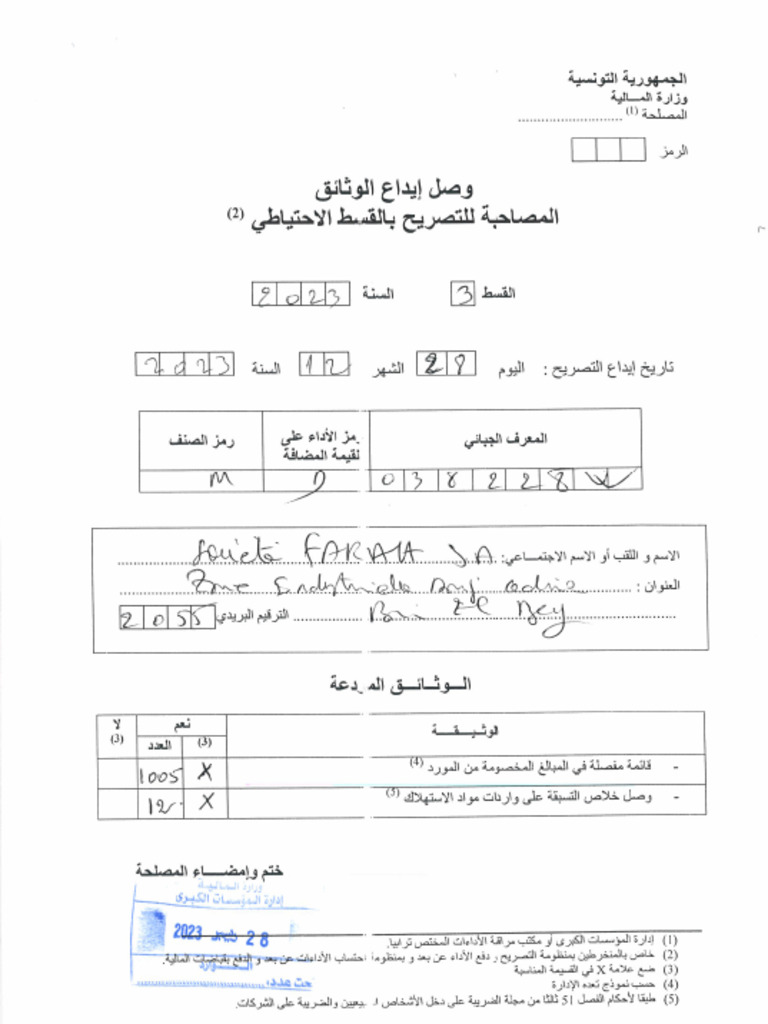 الجمهورية التونسية
وزارة المالية
المصلحة (1) ..............................
الرمز
وصل إيداع الوثائق
المصاحبة للتصريح بالقسط الاحتياطي (2)
القسط 3 السنة 2023
تاريخ إيداع التصريح : اليوم 28 الشهر 12 السنة 2023
المعرف الجبائي رمز الأداء على القيمة المضافة رمز الصنف
0 3 8 2 2 8 M
الاسم و اللقب أو الاسم الاجتماعي: Société FARAH S.A
العنوان : Zone Industrielle
El Bey الترقيم البريدي 2055
الوثائق المودعة
الوثيقة نعم لا
(3) العدد (3)
- قائمة مفصلة في المبالغ المخصومة من المورد (4) X 1005
- وصل خلاص التسبقة على واردات مواد الاستهلاك (5) X 12
ختم وإمضاء المصلحة
وزارة المالية
إدارة المؤسسات الكبرى
28 2023
(1) إدارة المؤسسات الكبرى أو مكتب مراقبة الأداءات المختص ترابيا.
(2) خاص بالمنخرطين بمنظومة التصريح و دفع الأداء عن بعد و بمنظومة احتساب الأداءات عن بعد و الدفع بقباضات المالية.
(3) ضع علامة X في القسيمة المناسبة
(4) حسب نموذج تعده الإدارة
(5) طبقا لأحكام الفصل 51 ثالثا من مجلة الضريبة على دخل الأشخاص الطبيعيين والضريبة على الشركات.